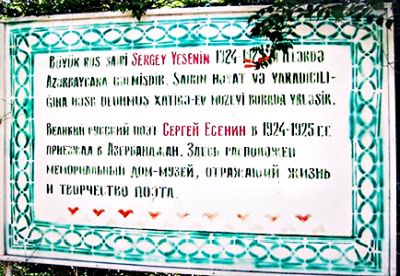 BÖYÜK RUS ŞAİRİ SERGEY YESENİN 1924 1925 İLLƏRDƏ
AZƏRBAYCANA GƏLMİŞDİR. ŞAİRİN HƏYAT VƏ YARADICILI-
ĞINA HƏSR OLUNMUŞ XATİRƏ-EV MUZEYİ BURDA YRLƏŞİR.
ВЕЛИКИЙ РУССКИЙ ПОЭТ СЕРГЕЙ ЕСЕНИН В 1924-1925 Г.Г.
ПРИЕЗЖАЛ В АЗЕРБАЙДЖАН. ЗДЕСЬ РАСПОЛОЖЕН
МЕМОРИАЛЬНЫЙ ДОМ-МУЗЕЙ, ОТРАЖАЮЩИЙ ЖИЗНЬ
И ТВОРЧЕСТВО ПОЭТА.